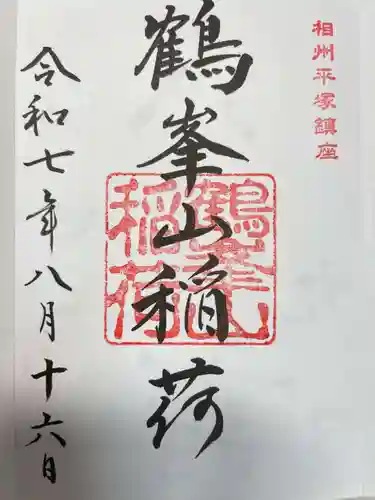 相州平塚鎮座
鶴峯山稲荷
令和七年八月十六日
鶴峯山
稲荷